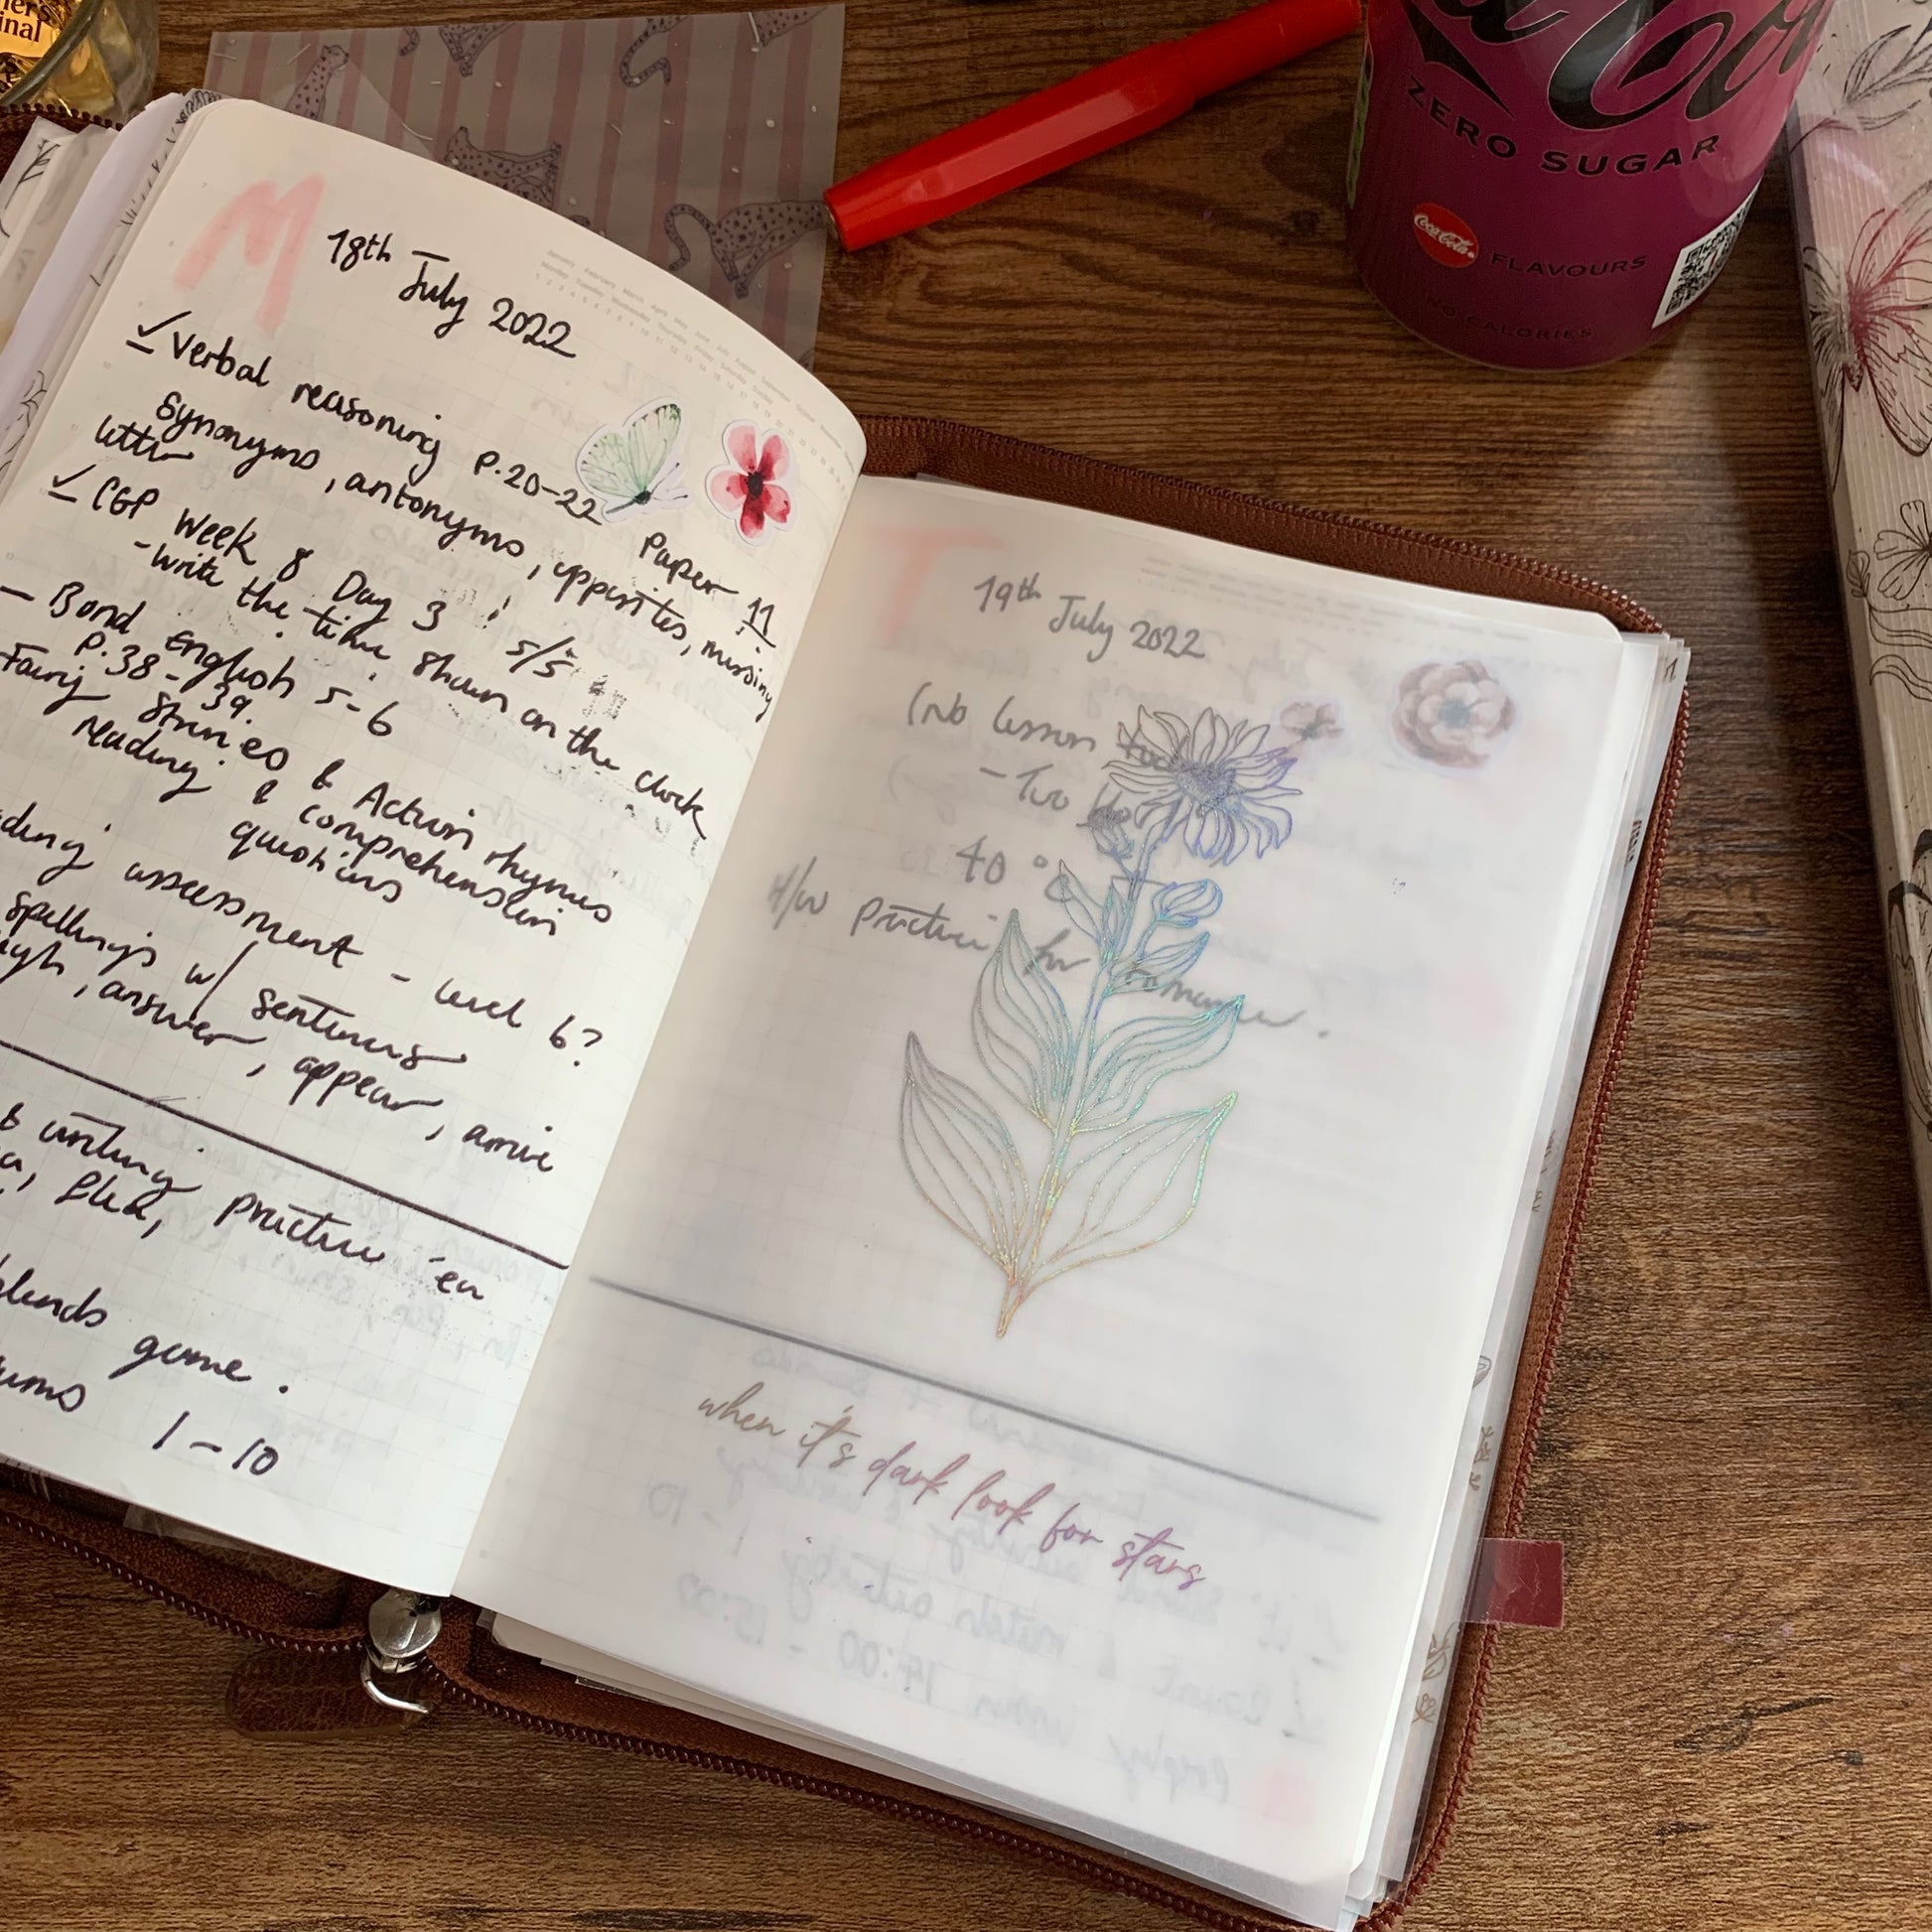 M
18th
July 2022
Verbal reasoning p.20-22 Paper 11
Synonyms, antonyms, opposites, missing
letter
CGP Week 8 Day 3 : 5/5
-write the time shown on the clock
- Bond English 5-6
p.38 - 39.
Fairy Stories & Action rhymes
reading & comprehension
questions
assessment - level 6?
spellings w/ sentences
answer, appear, arrive
& writing practice 'ea
flea,
blends game.
1-10
T
19th July 2022
(No lesson
- Two
40 °C
H/W practice for tomorrow.
when it's dark look for stars
ZERO SUGAR
Coca-Cola
FLAVOURS
NO CALORIES